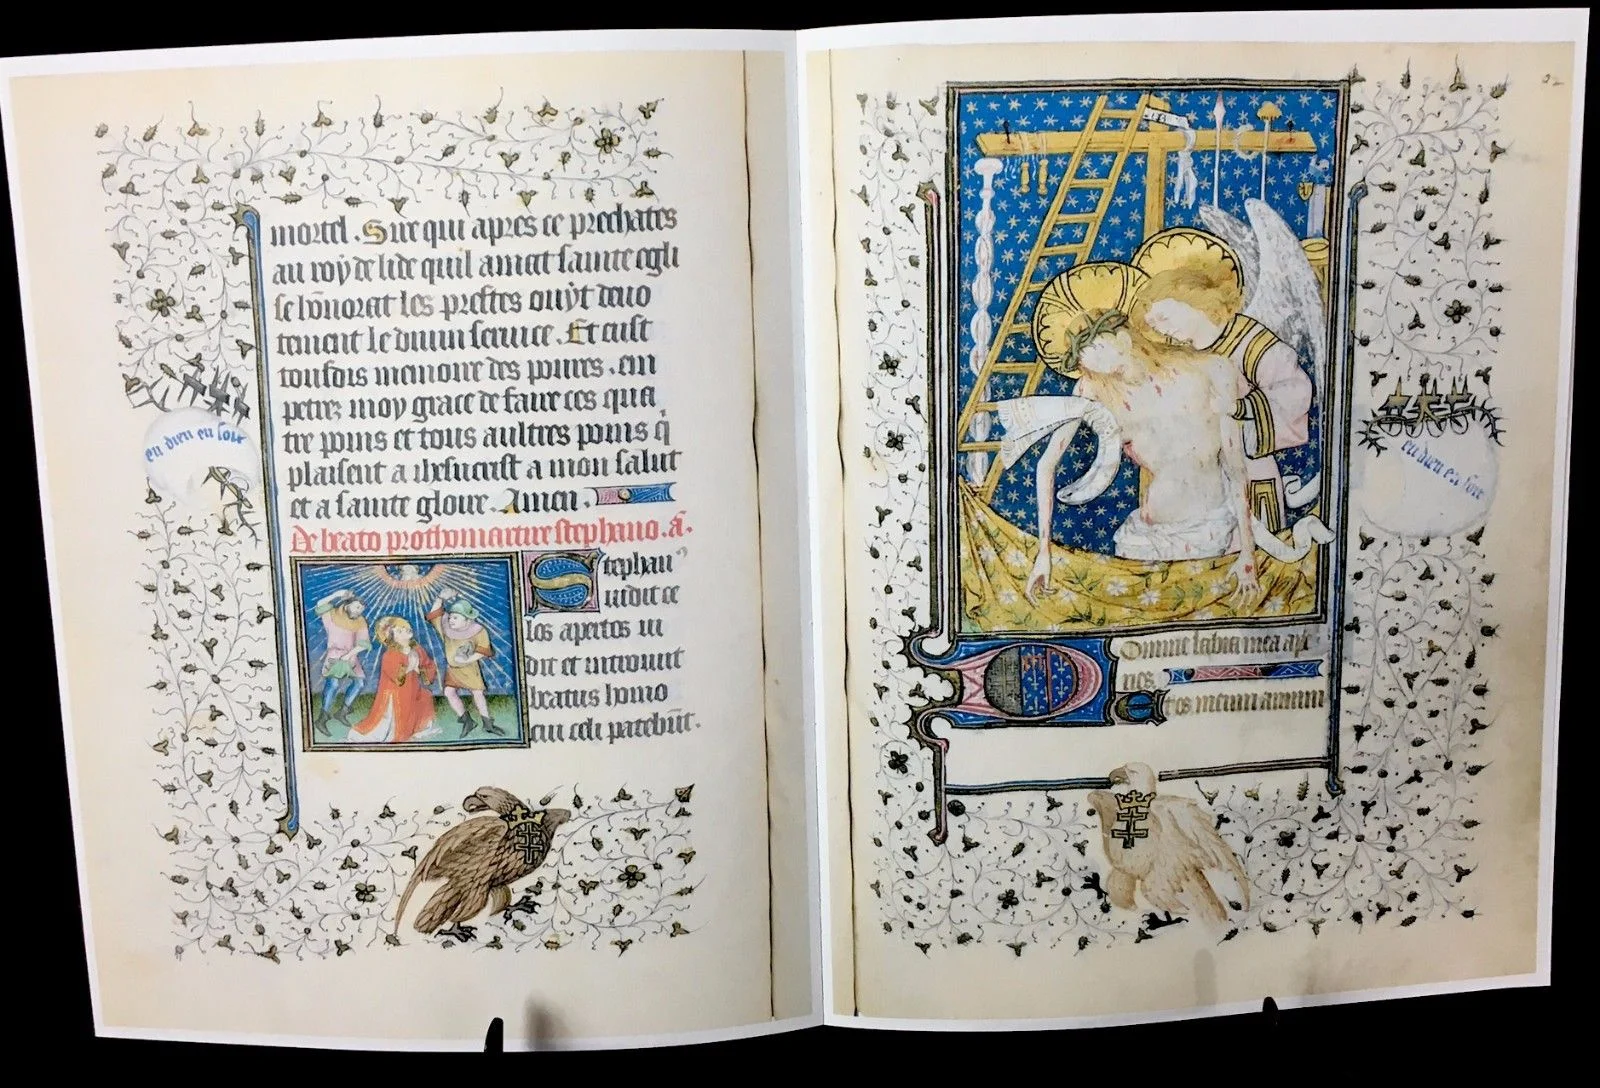 en dieu en soit
mortel. Sur qui apres ce prechates
au roy de lide quil amast sainte egli
se hōnorast les prestres ouyt deuo
tement le diuin seruice. Et eust
tousdis memoire des poures. em
petrez moy grace de faire ces qua
tre poins et tous aultres poins q̄
plaisent a ihesucrist a mon salut
et a sainte gloire. Amen.
De beato prothomartire stephano. ā.
Stephan⁹
uidit ce
los apertos ui
dit et introiuit
beatus homo
cui celi patebūt.
en dieu en soit
Domine labia mea ape
ries
Et os meum annun